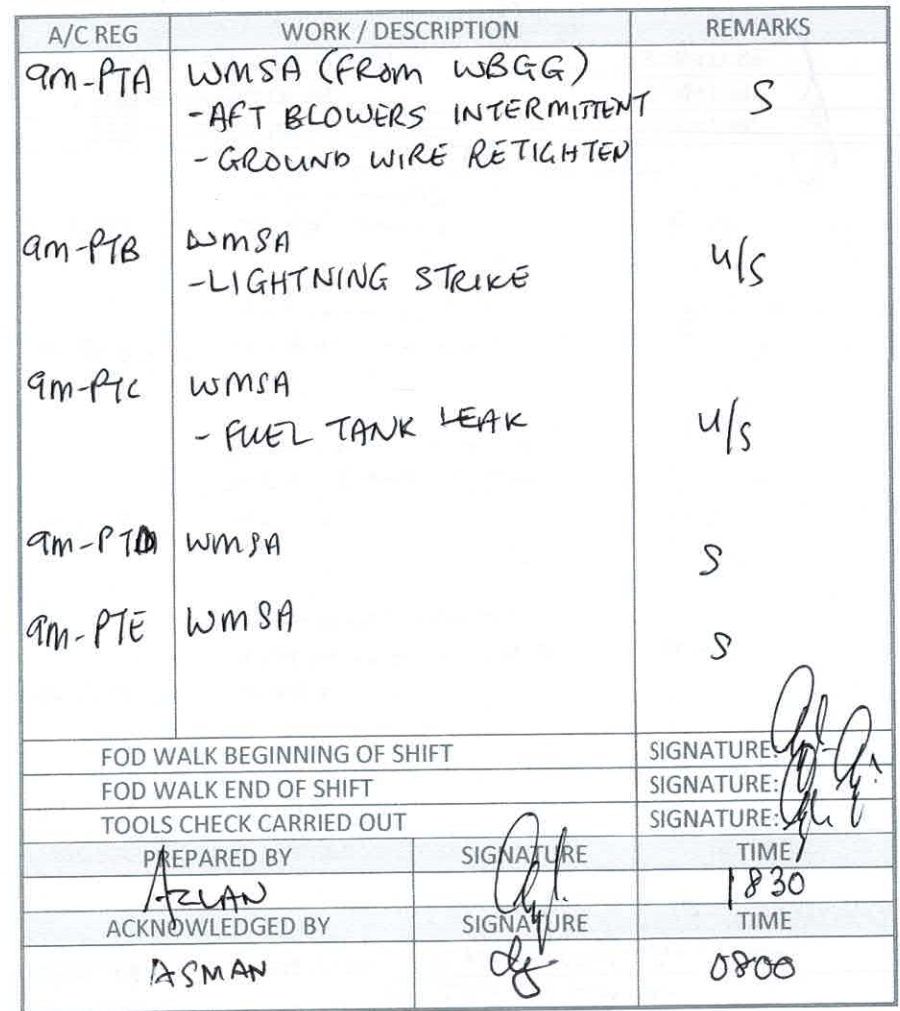 A/C REG WORK / DESCRIPTION REMARKS
9m-PTA WMSA (FROM WBGG) S
-AFT BLOWERS INTERMITTENT
- GROUND WIRE RETIGHTEN
9m-PTB WMSA u/s
-LIGHTNING STRIKE
9m-PTC WMSA u/s
- FUEL TANK LEAK
9m-PTD WMSA S
9m-PTE WMSA S
FOD WALK BEGINNING OF SHIFT SIGNATURE:
FOD WALK END OF SHIFT SIGNATURE:
TOOLS CHECK CARRIED OUT SIGNATURE:
PREPARED BY SIGNATURE TIME
AZLAN 1830
ACKNOWLEDGED BY SIGNATURE TIME
ASMAN 0800